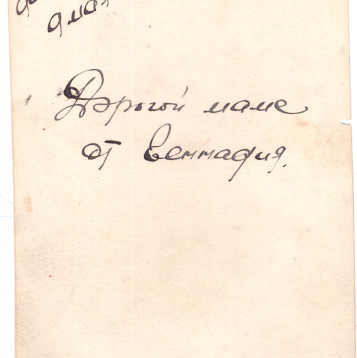 Дорогой маме
от Геннадия.